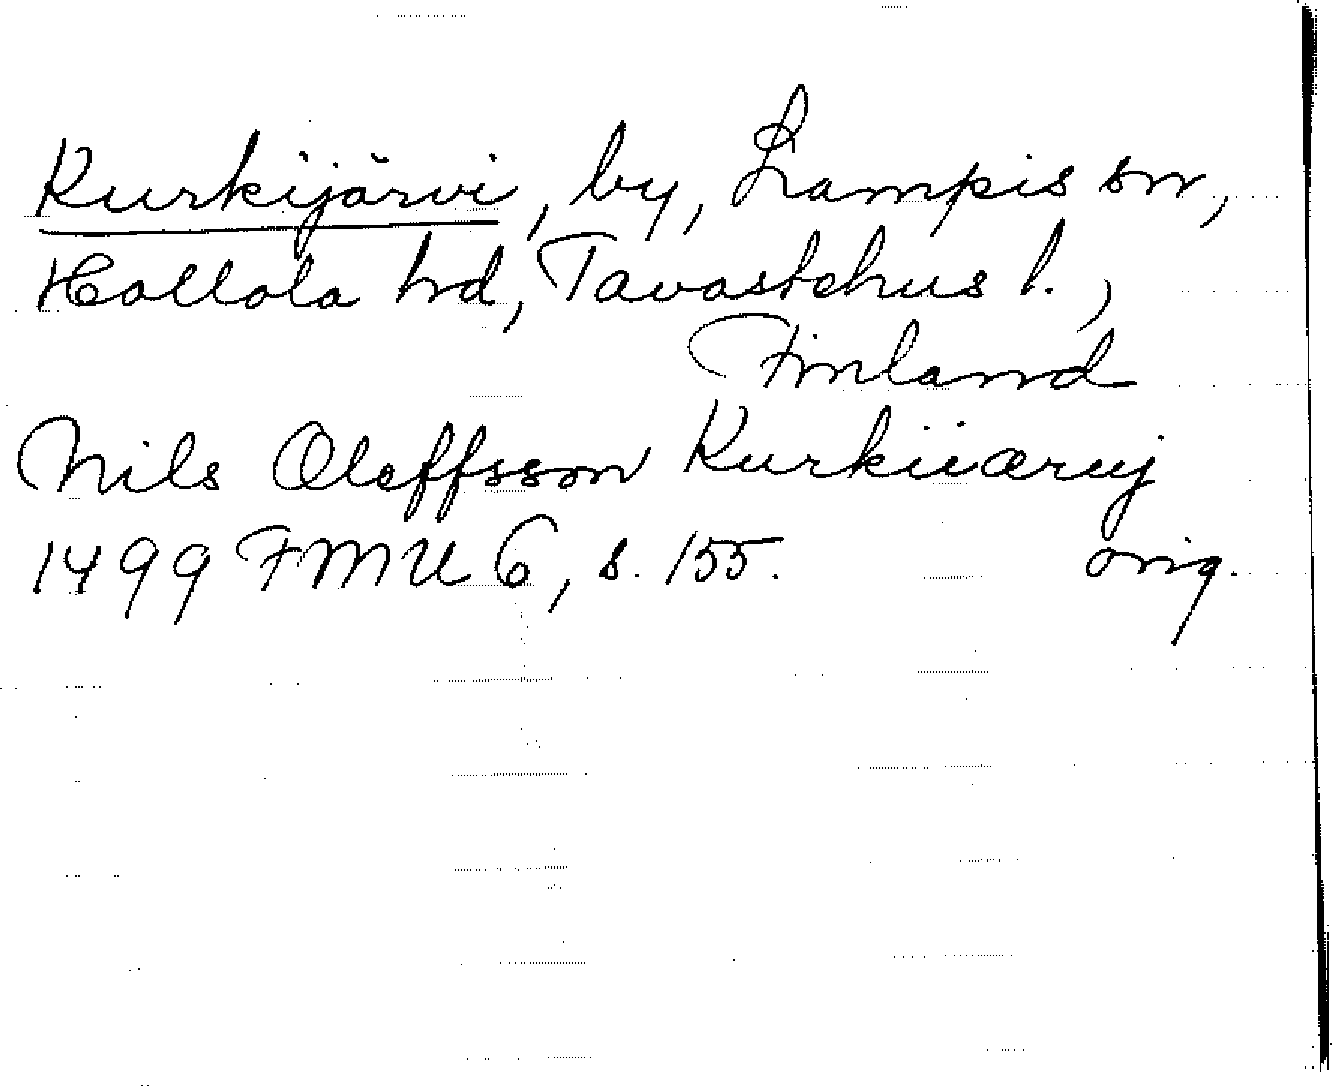 Kurkijärvi, by, Lampis sn,
Hollola hd, Tavastehus l.,
Finland
Nils Oleffsson Kurkiiæruj
1499 FMU 6, s. 155. orig.